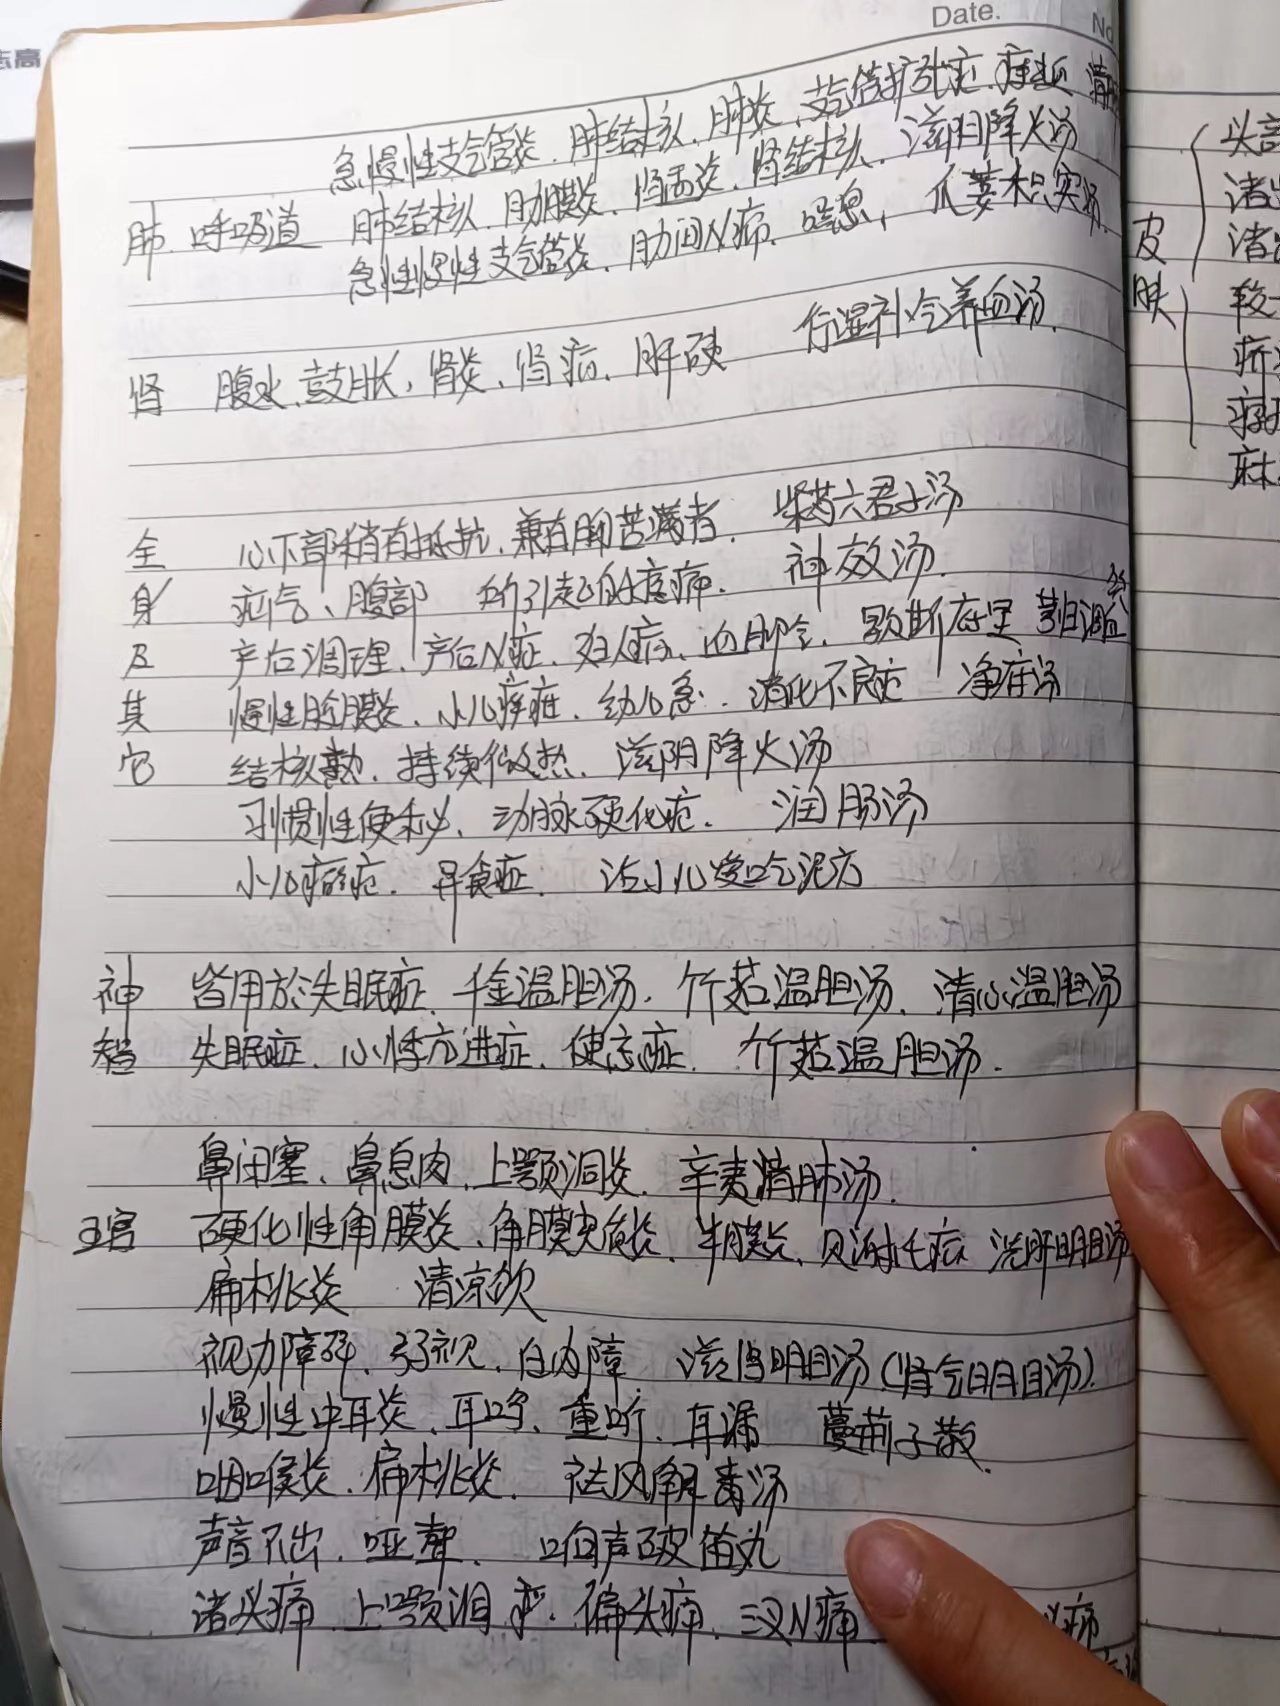 志高
Date.
No
急慢性支气管炎、肺结核、肺炎、支气管扩张症、清
肺 呼吸道 肺结核、肋膜炎、肾盂炎、肾结核、滋阴降火汤
急性慢性支气管炎、肋间N痛、喘息、瓜蒌木只实汤
肾 腹水、鼓胀、肾炎、肾病、肝硬 行湿补气养血汤
全 心下部稍有抵抗、兼有胸苦满者、柴芍六君子汤
身 疝气、腹部 所引起的疼痛、神效汤
及 产后调理、产后N症、妇人病、血脚气、歇斯底里 芎归调血饮
其 慢性腹膜炎、小儿、幼儿急、消化不良症 净府汤
它 结核热、持续微热、滋阴降火汤
习惯性便秘、动脉硬化症、润肠汤
小儿癖症、异食症、治小儿爱吃泥方
神 皆用於失眠症、千金温胆汤、竹茹温胆汤、清心温胆汤
智 失眠症、心悸亢进症、健忘症、竹茹温胆汤.
鼻闭塞、鼻息肉、上颚洞炎、辛夷清肺汤.
五官 硬化性角膜炎、角膜实质炎、洗肝明目汤
扁桃炎 清凉饮
视力障碍、弱视、白内障 滋肾明目汤(肾气明目汤).
慢性中耳炎、耳鸣、重听、耳漏 蔓荆子散.
咽喉炎、扁桃炎、祛风解毒汤
声音不出、哑聲、响声破笛丸
诸头痛 上颚洞 偏头痛、三叉N痛 头痛
皮
肤
头
诸
诸
较
疥
麻